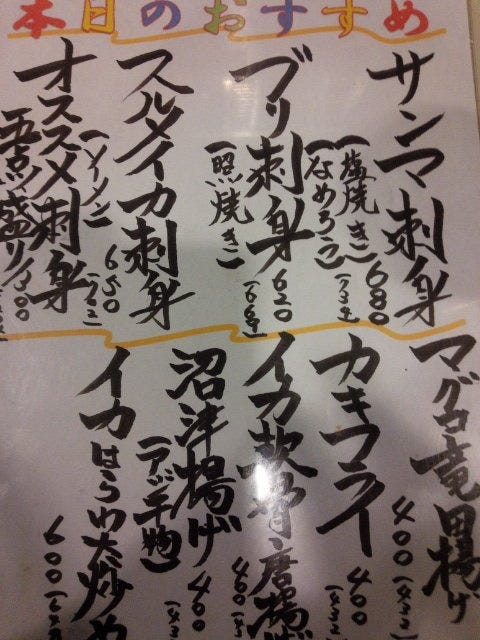 本日のおすすめ
サンマ刺身
(塩焼き)
(なめろう)
680
ブリ刺身
(照り焼き)
620
スルメイカ刺身
(ソーメン)
650
オススメ刺身
五点盛り
マグロ竜田揚げ
400
カキフライ
400
イカ軟骨唐揚げ
400
沼津揚げ
(アジ干物)
400
イカはらわた炒め
600